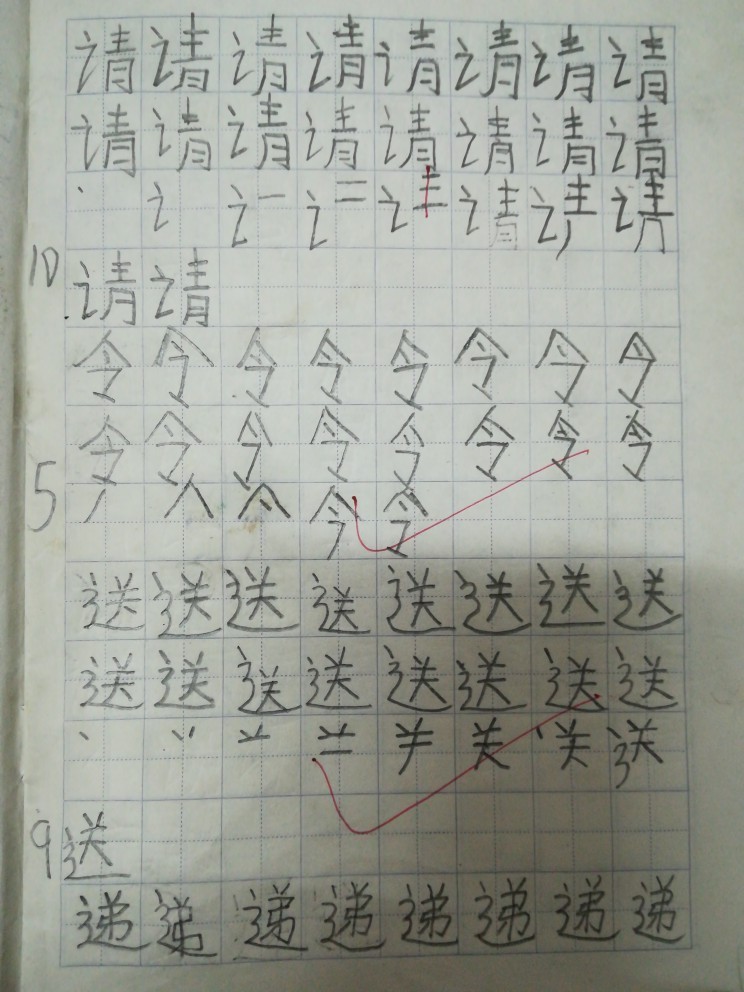 请请请请请请请请
请请请请请请请请
丶讠
10 请请
令令令令令令令令
令令令令令令令令
5 丿人亼今令
送送送送送送送送
送送送送送送送送
丶丷
9 送
递递递递递递递递